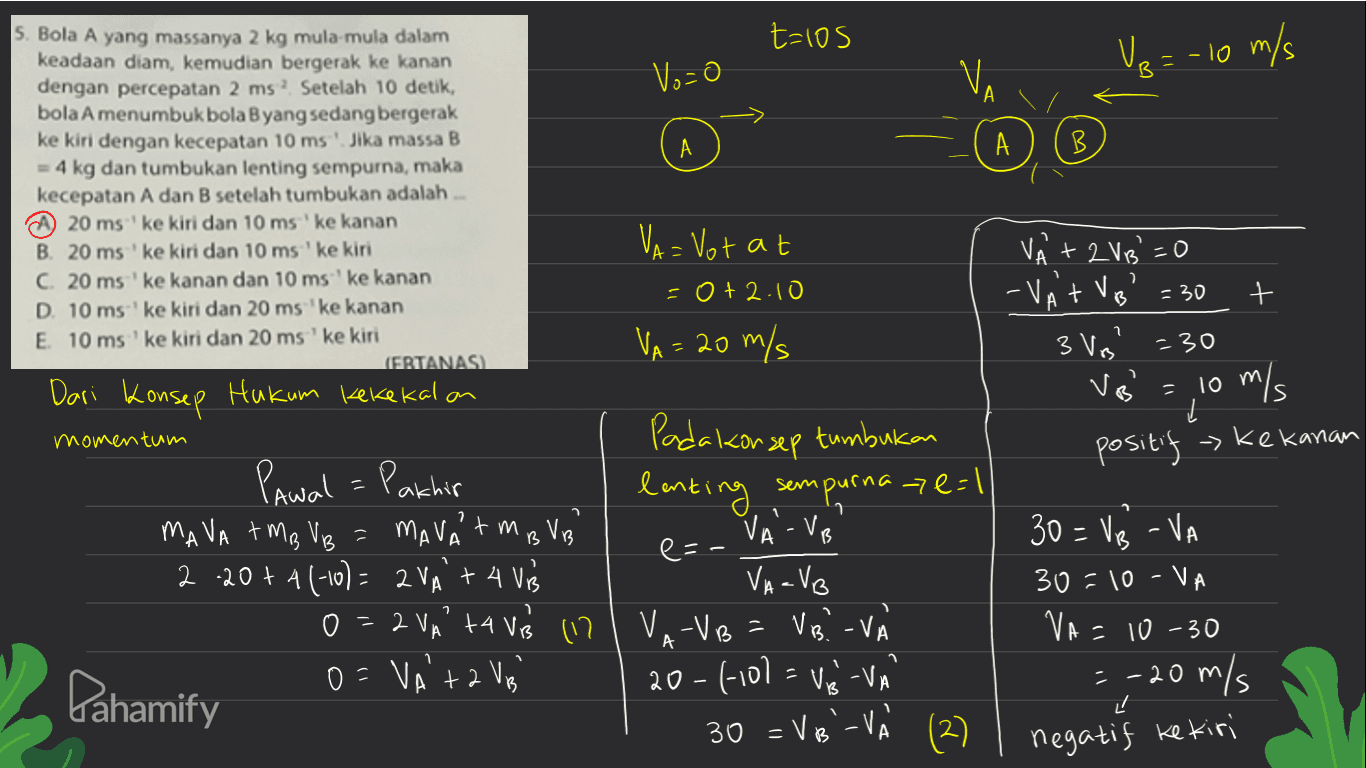 5. Bola A yang massanya 2 kg mula-mula dalam
keadaan diam, kemudian bergerak ke kanan
dengan percepatan 2 ms⁻². Setelah 10 detik,
bola A menumbuk bola B yang sedang bergerak
ke kiri dengan kecepatan 10 ms⁻¹. Jika massa B
= 4 kg dan tumbukan lenting sempurna, maka
kecepatan A dan B setelah tumbukan adalah ...
A. 20 ms⁻¹ ke kiri dan 10 ms⁻¹ ke kanan
B. 20 ms⁻¹ ke kiri dan 10 ms⁻¹ ke kiri
C. 20 ms⁻¹ ke kanan dan 10 ms⁻¹ ke kanan
D. 10 ms⁻¹ ke kiri dan 20 ms⁻¹ ke kanan
E. 10 ms⁻¹ ke kiri dan 20 ms⁻¹ ke kiri
(EBTANAS)
t=10s
V₀=0
V_A
V_B = -10 m/s
A
A
B
V_A = V₀ + a t
= 0 + 2.10
V_A = 20 m/s
Dari Konsep Hukum kekekalan
momentum
P_Awal = P_akhir
m_A V_A + m_B V_B = m_A V_A' + m_B V_B'
2 .20 + 4 (-10) = 2 V_A' + 4 V_B'
0 = 2 V_A' + 4 V_B' (1)
0 = V_A' + 2 V_B'
Pada konsep tumbukan
lenting sempurna → e=1
e = - V_A' - V_B'
V_A - V_B
V_A - V_B = V_B' - V_A'
20 - (-10) = V_B' - V_A'
30 = V_B' - V_A' (2)
V_A' + 2 V_B' = 0
-V_A' + V_B' = 30 +
3 V_B' = 30
V_B' = 10 m/s
positif → ke kanan
30 = V_B' - V_A
30 = 10 - V_A
V_A = 10 - 30
= -20 m/s
negatif ke kiri
Pahamify